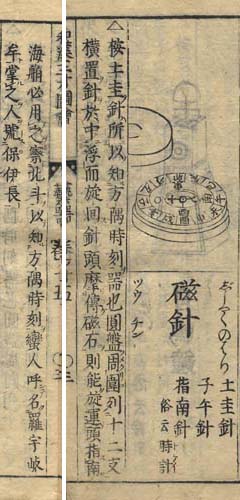 ぢしやくのはり
磁針
ツウ チン
土圭針
子午針
指南針
俗云時計
△按土圭針所以知方隅時刻器也圓盤周圍列十二支
橫置針於中浮而旋回針頭摩傳磁石則能旋運頭指南
和漢三才圖會 藝器 卷十五 〇三
海舶必用之察北斗以知方隅時刻蠻人呼名羅宇岐
牟掌之人號保伊長